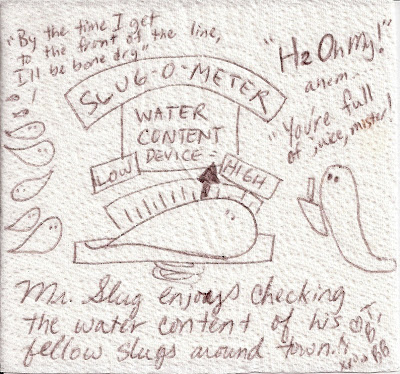 "By the time I get
to the front of the line,
I'll be bone dry."
SLUG-O-METER
"H2 Oh My!"
ahem...
"You're full
of juice, mister!"
WATER
CONTENT
DEVICE:
LOW
HIGH
Mr. Slug enjoys checking
the water content of his
fellow slugs around town.